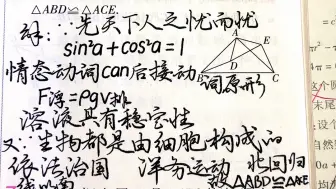 △ABD≌△ACE.
解:∵先天下人之忧而忧
sin²a+cos²a=1
A
E
B
D
C
情态动词can后接动词原形
F浮=ρgV排
溶液具有稳定性
又∵生物都是由细胞构成的
依法治国 洋务运动 北回归
△ABD≌△ACE